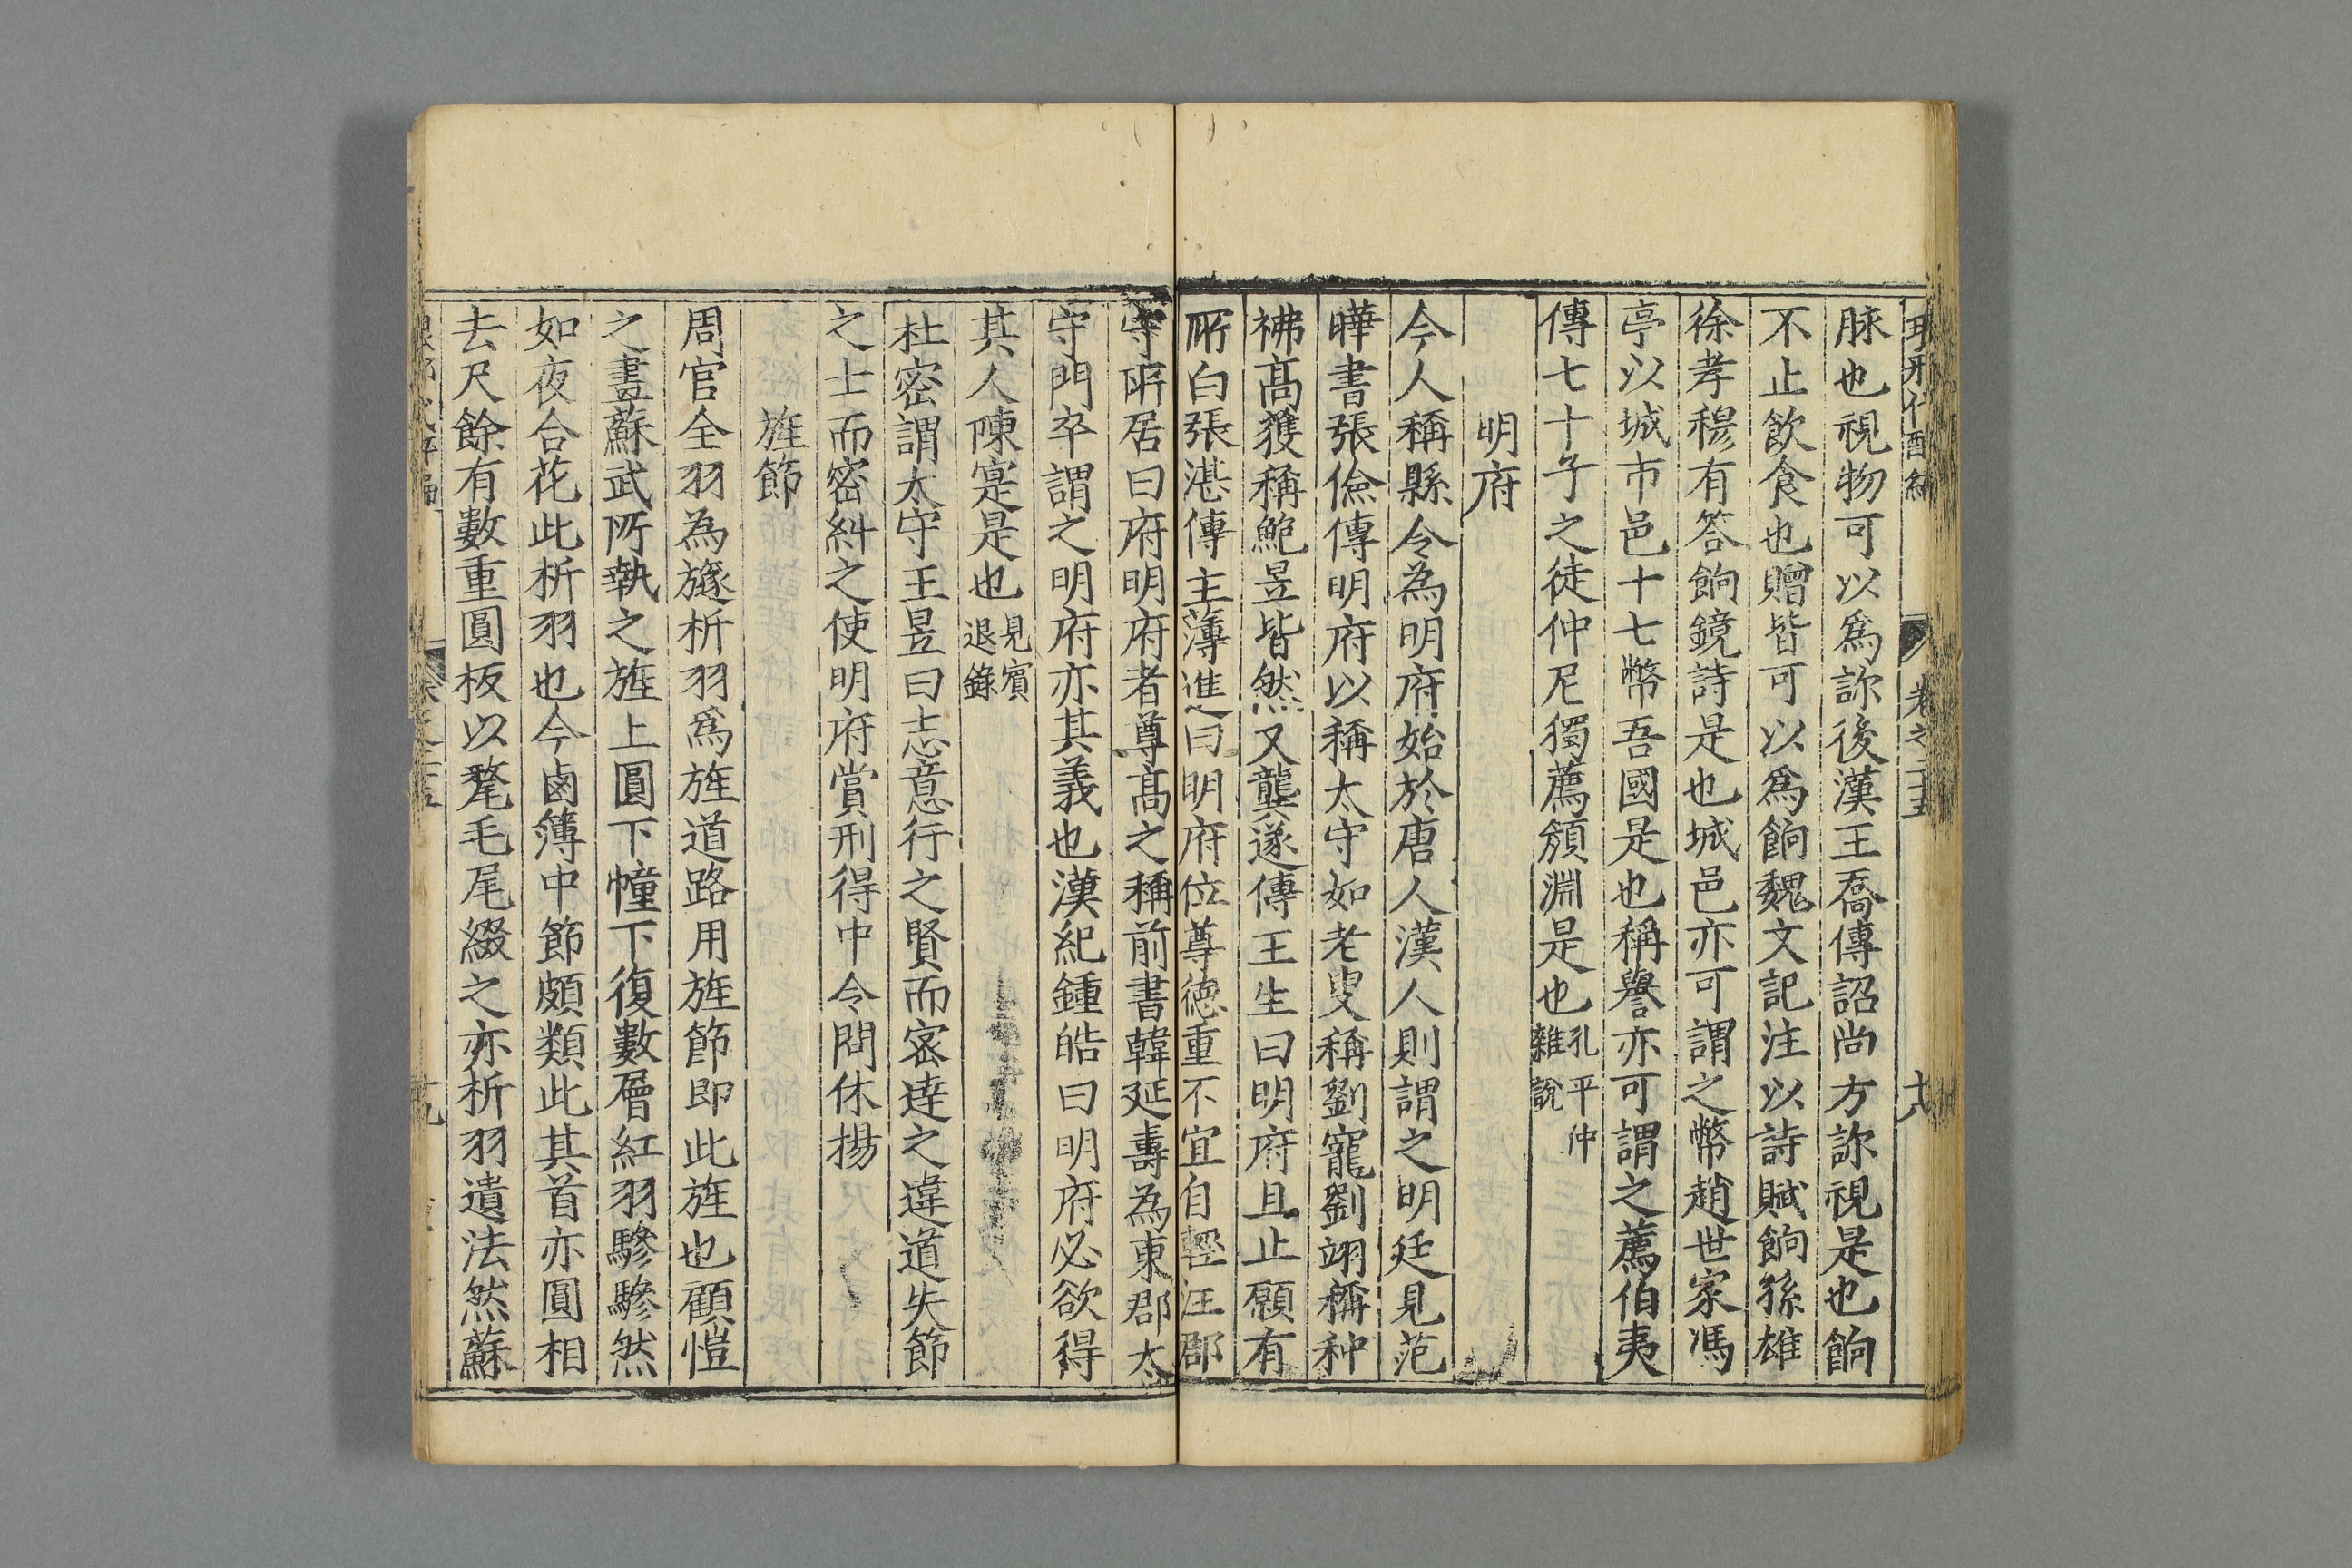 卷之十五
脉也視物可以爲診後漢王喬傳詔尚方診視是也餉
不止飲食也贈皆可以爲餉魏文記注以詩賦餉孫雄
徐孝穆有答餉鏡詩是也城邑亦可謂之幣趙世家馮
亭以城市邑十七幣吾國是也稱譽亦可謂之薦伯夷
傳七十子之徒仲尼獨薦顏淵是也孔平仲雜說
明府
今人稱縣令為明府始於唐人漢人則謂之明廷見范
曄書張儉傳明府以稱太守如老叟稱劉寵劉翊稱种
拂高獲稱鮑昱皆然又龔遂傳王生曰明府且止願有
所白張湛傳主簿進曰明府位尊德重不宜自輕注郡
守所居曰府明府者尊高之稱前書韓延壽為東郡太
守門卒謂之明府亦其義也漢紀鍾皓曰明府必欲得
其人陳寔是也見賓退錄
杜密謂太守王昱曰志意行之賢而密達之違道失節
之士而密糾之使明府賞刑得中令問休揚
旌節
周官全羽為旞析羽爲旌道路用旌節即此旌也顧愷
之畫蘇武所執之旌上圓下幢下復數層紅羽驂驂然
如夜合花此析羽也今鹵簿中節頗類此其首亦圓相
去尺餘有數重圓板以氂毛尾綴之亦析羽遺法然蘇